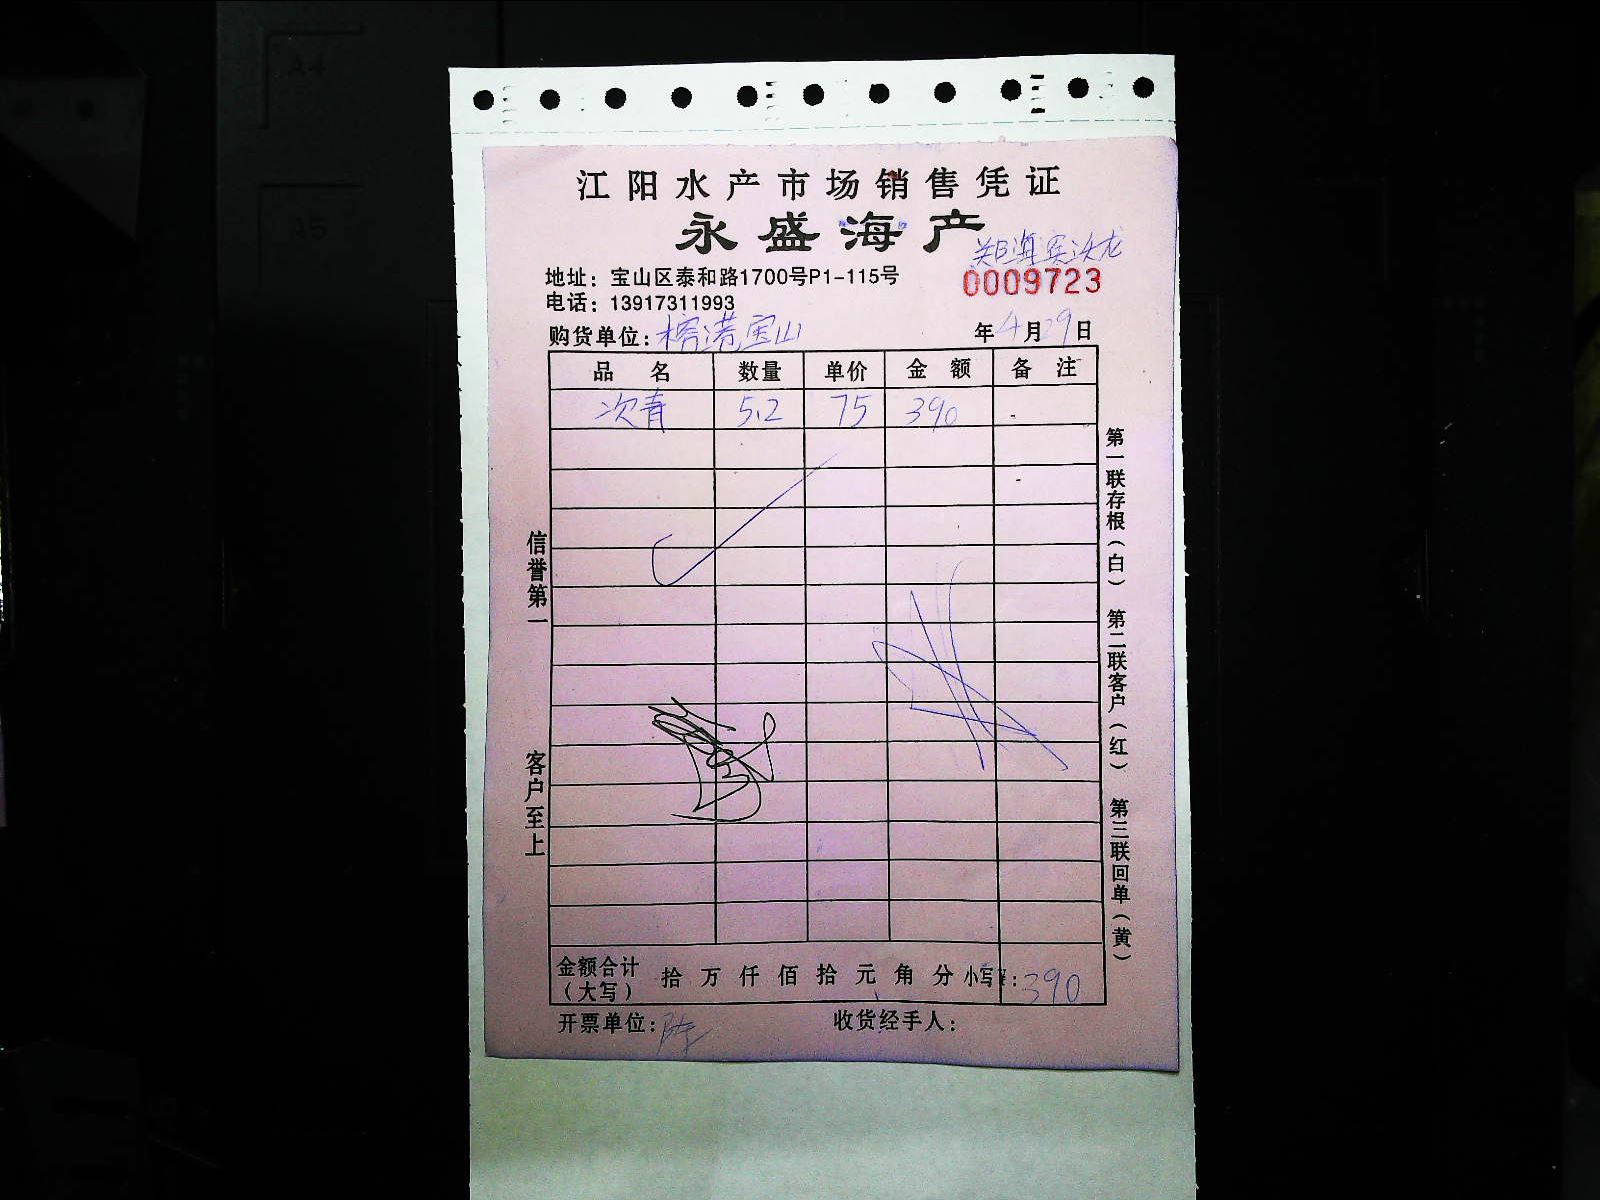 江阳水产市场销售凭证
永盛海产
地址：宝山区泰和路1700号P1-115号
0009723
电话：13917311993
购货单位：榕港宝山 年4月29日
品名 数量 单价 金额 备注
次青 5.2 75 390
信誉第一 客户至上
第一联存根（白） 第二联客户（红） 第三联回单（黄）
金额合计（大写） 拾 万 仟 佰 拾 元 角 分 小写¥：390
开票单位：陈 收货经手人：
A4
A5